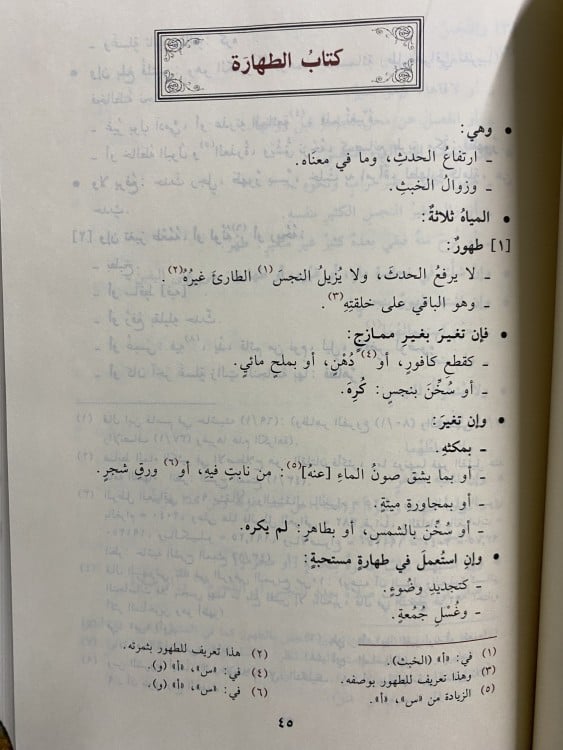 كتابُ الطهارَة
• وهي:
ـ ارتفاعُ الحدثِ، وما في معنَاه.
ـ وزوالُ الخبثِ.
• المياهُ ثلاثةٌ:
[١] طهورٌ:
ـ لا يرفعُ الحدثَ، ولا يُزيلُ النجسَ(١) الطارئَ غيرُهُ(٢).
ـ وهو الباقي على خلقتِهِ(٣).
• فإن تغيرَ بغيرِ ممازجٍ:
ـ كقطعِ كافورٍ، أو(٤) دُهْنٍ، أو بملحٍ مائيٍ.
ـ أو سُخِّنَ بنجسٍ: كُرِهَ.
• وإن تغيرَ:
ـ بمكثِهِ.
ـ أو بما يشق صونُ الماءِ [عنهُ](٥): من نابتٍ فيهِ، أو(٦) ورقِ شجرٍ.
ـ أو بمجاورةِ ميتةٍ.
ـ أو سُخِّنَ بالشمسِ، أو بطاهرٍ: لم يكره.
• وإنِ استُعملَ في طهارةٍ مستحبةٍ:
ـ كتجديدِ وضُوءٍ.
ـ وغُسْلِ جُمُعةٍ.
(١) في: «أ» (الخبث).
(٢) هذا تعريف للطهور بثمرته.
(٣) وهذا تعريف للطهور بوصفه.
(٤) في: «س»، «أ»، (و).
(٥) الزيادة من «س»، «أ».
(٦) في: «س»، «أ»، (و).
٤٥